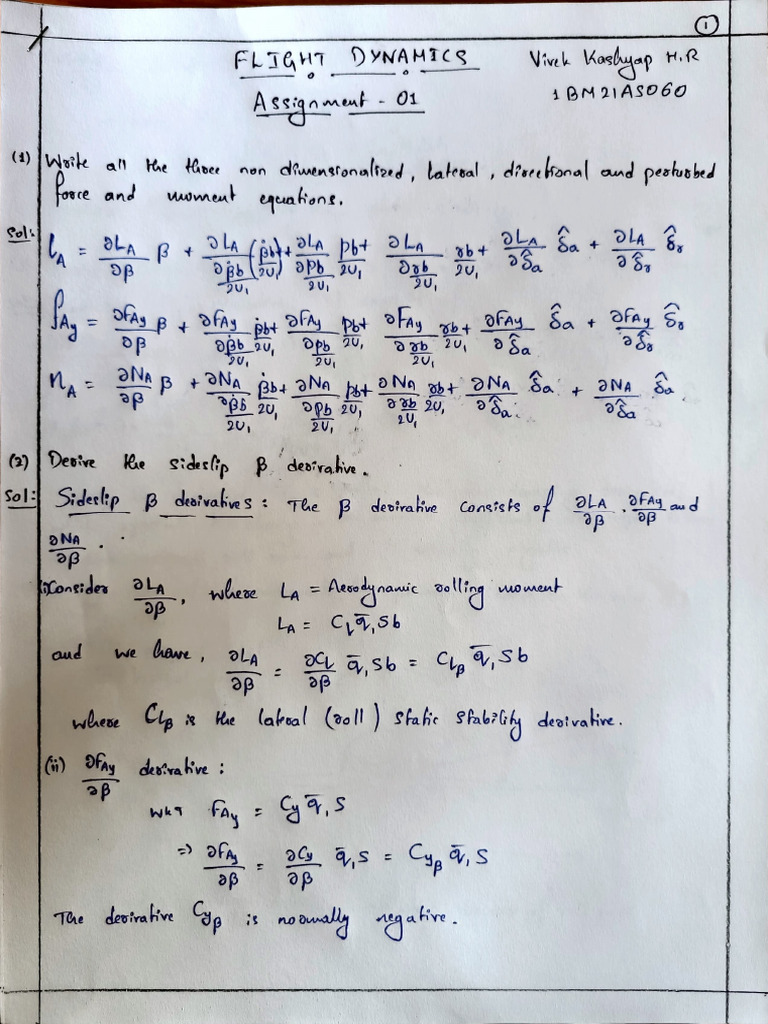 1
FLIGHT DYNAMICS
Vivek Kashyap H.R
Assignment - 01
1BM21AS060
(1) Write all the three non dimensionalized, lateral, directional and perturbed
force and moment equations.
Sol: l_A = ∂L_A/∂β β + ∂L_A/∂(β̇b/2U₁) (β̇b/2U₁) + ∂L_A/∂(pb/2U₁) pb/2U₁ + ∂L_A/∂(rb/2U₁) rb/2U₁ + ∂L_A/∂δ̂a δ̂a + ∂L_A/∂δ̂r δ̂r
f_Ay = ∂F_Ay/∂β β + ∂F_Ay/∂(β̇b/2U₁) β̇b/2U₁ + ∂F_Ay/∂(pb/2U₁) pb/2U₁ + ∂F_Ay/∂(rb/2U₁) rb/2U₁ + ∂F_Ay/∂δ̂a δ̂a + ∂F_Ay/∂δ̂r δ̂r
n_A = ∂N_A/∂β β + ∂N_A/∂(β̇b/2U₁) β̇b/2U₁ + ∂N_A/∂(pb/2U₁) pb/2U₁ + ∂N_A/∂(rb/2U₁) rb/2U₁ + ∂N_A/∂δ̂a δ̂a + ∂N_A/∂δ̂a δ̂a
(2) Derive the sideslip β derivative.
Sol: Sideslip β derivatives : The β derivative consists of ∂L_A/∂β , ∂F_Ay/∂β and
∂N_A/∂β .
(i) Consider ∂L_A/∂β , where L_A = Aerodynamic rolling moment
L_A = C_l q̄₁ S b
and we have, ∂L_A/∂β = ∂C_l/∂β q̄₁ S b = C_lβ q̄₁ S b
where C_lβ is the lateral (roll) static stability derivative.
(ii) ∂F_Ay/∂β derivative :
WKT F_Ay = C_y q̄₁ S
⇒ ∂F_Ay/∂β = ∂C_y/∂β q̄₁ S = C_yβ q̄₁ S
The derivative C_yβ is normally negative.